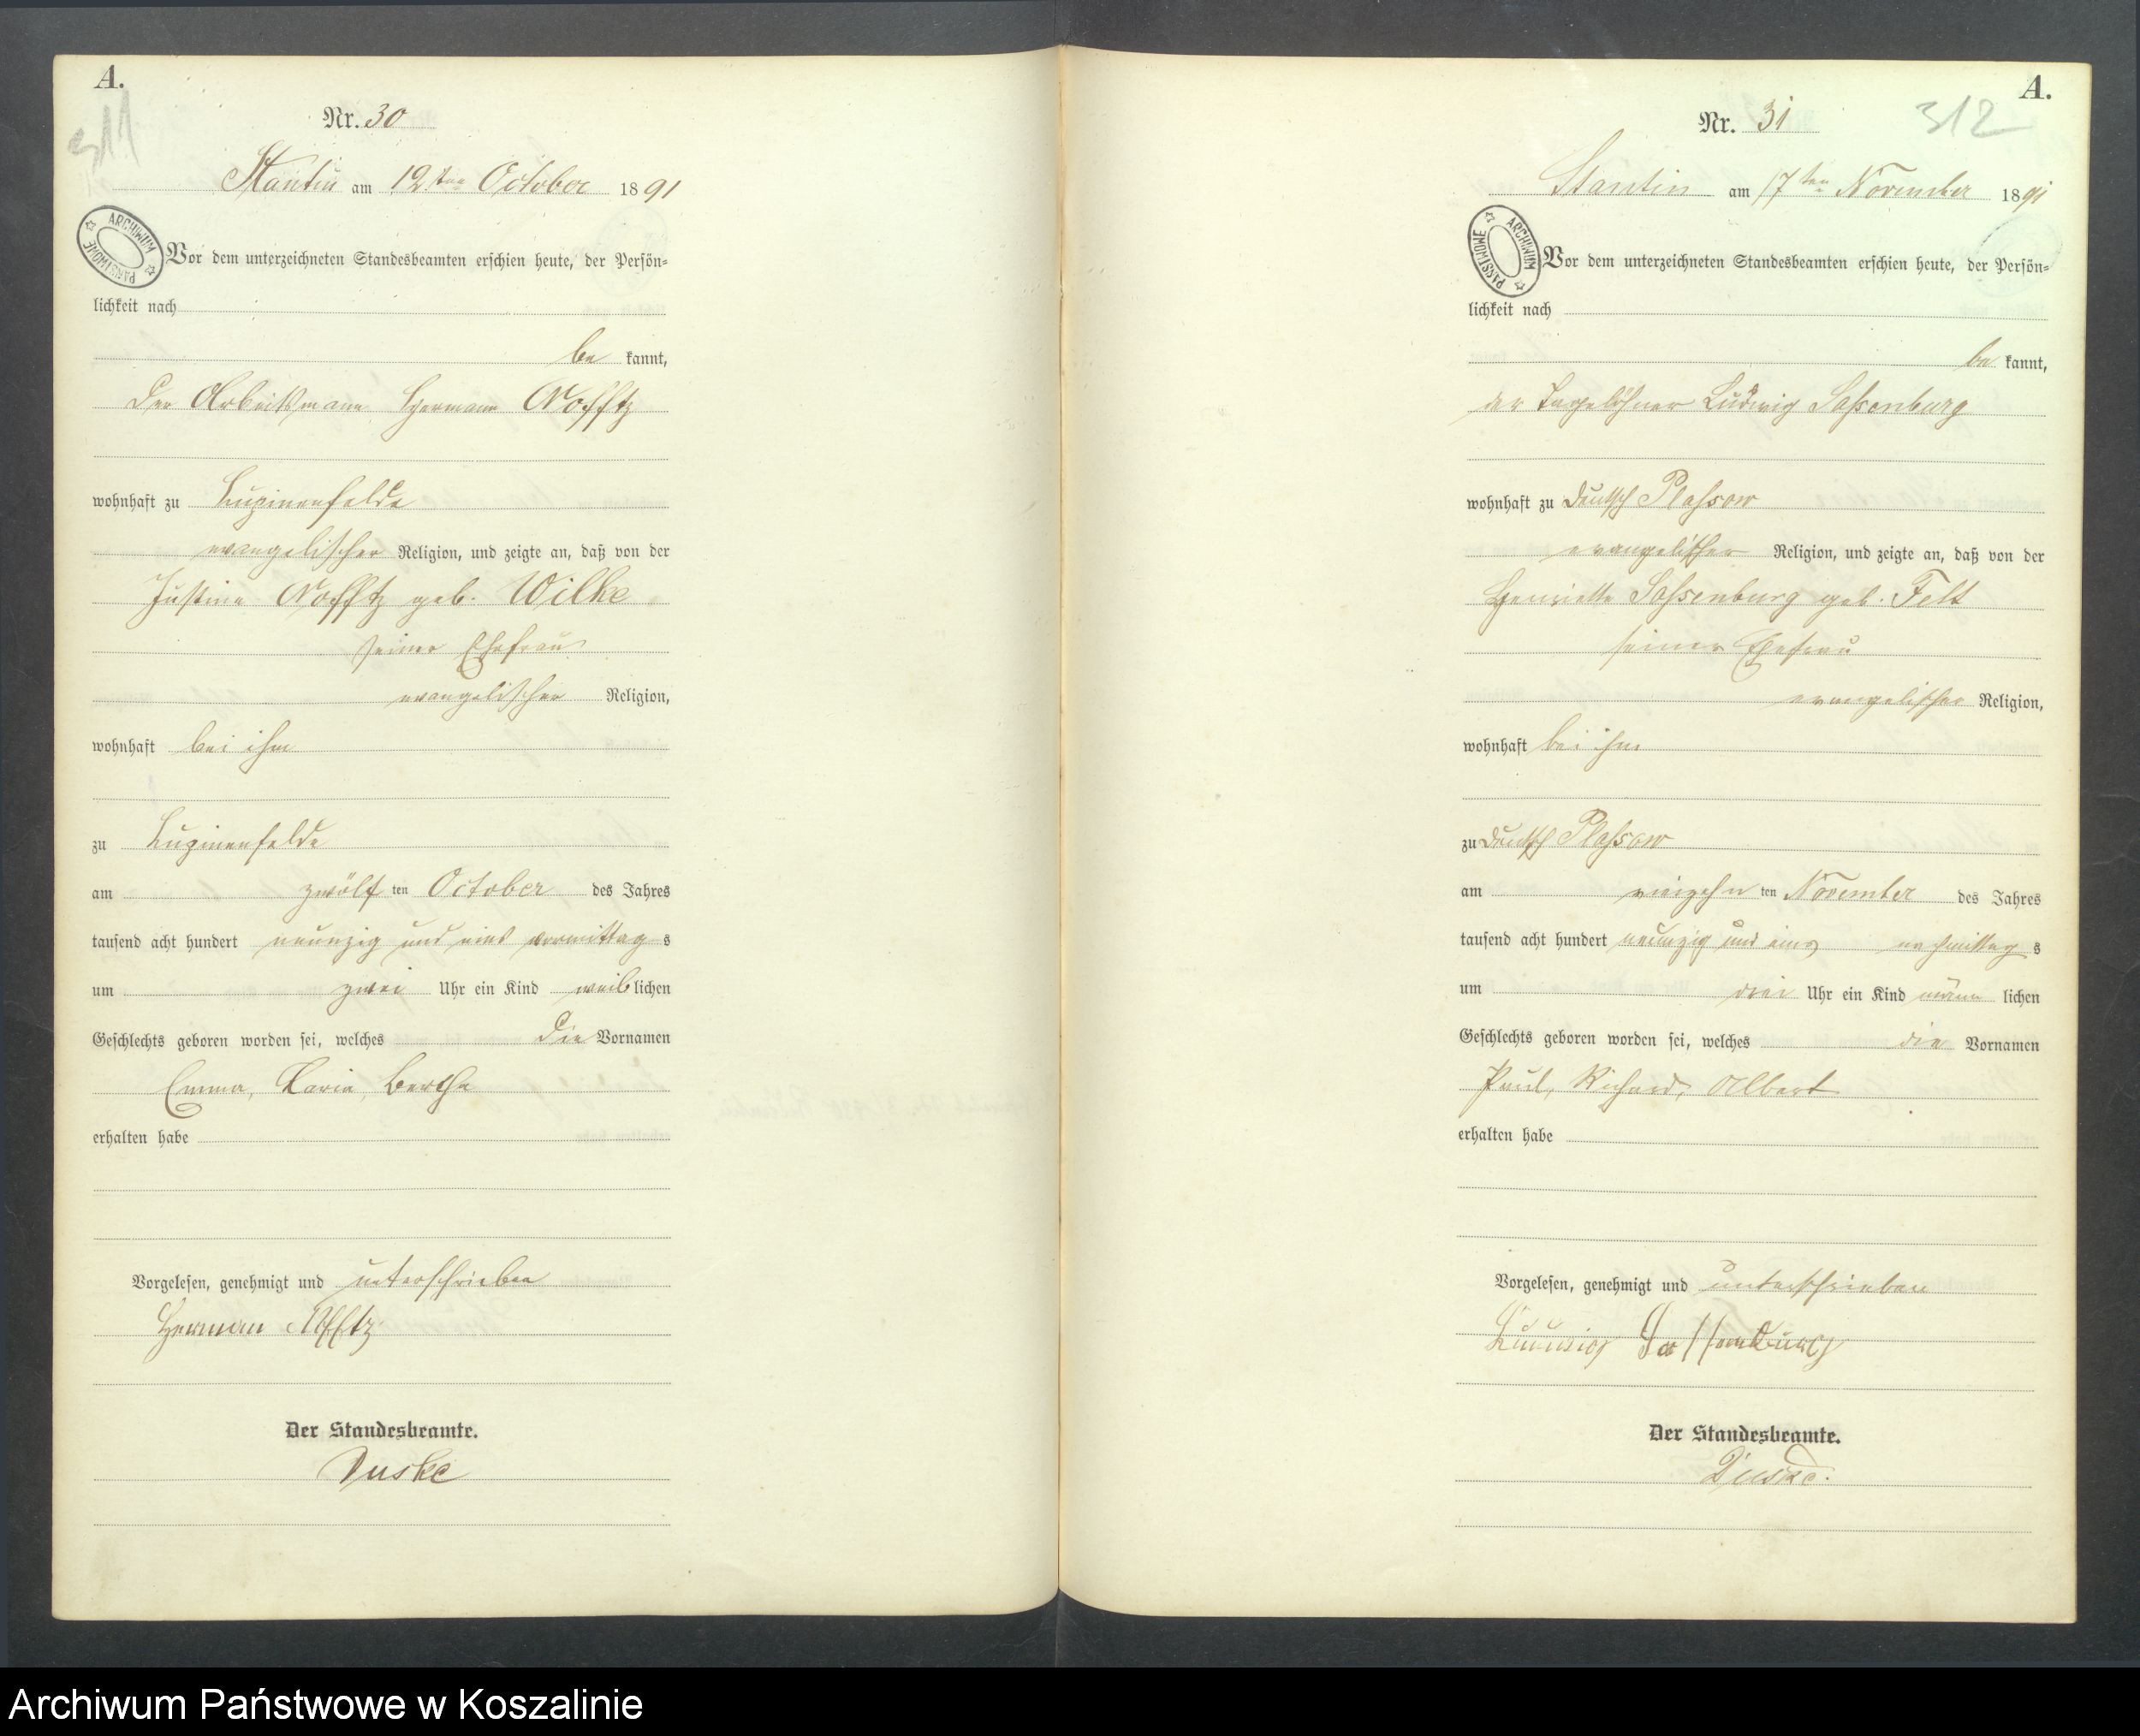 A.
311
Nr. 30
Stantin am 12ten October 1891
ARCHIWUM PAŃSTWOWE
Vor dem unterzeichneten Standesbeamten erschien heute, der Persön=
lichkeit nach
be kannt,
der Arbeitsmann Hermann Nofftz
wohnhaft zu Lupinenfelde
evangelischer Religion, und zeigte an, daß von der
Justine Nofftz geb. Wilke
seiner Ehefrau
evangelischer Religion,
wohnhaft bei ihm
zu Lupinenfelde
am zwölf ten October des Jahres
tausend acht hundert neunzig und eins vormittag s
um zwei Uhr ein Kind weib lichen
Geschlechts geboren worden sei, welches die Vornamen
Emma, Maria, Bertha
erhalten habe
Vorgelesen, genehmigt und unterschrieben
Herman Nofftz
Der Standesbeamte.
Duske
A.
312
Nr. 31
Stantin am 17ten November 1891
ARCHIWUM PAŃSTWOWE
Vor dem unterzeichneten Standesbeamten erschien heute, der Persön=
lichkeit nach
be kannt,
der Tagelöhner Ludwig Sassenburg
wohnhaft zu Deutsch Plassow
evangelischer Religion, und zeigte an, daß von der
Henriette Sassenburg geb. Felt
seiner Ehefrau
evangelischer Religion,
wohnhaft bei ihm
zu Deutsch Plassow
am vierzehn ten November des Jahres
tausend acht hundert neunzig und eins nachmittag s
um drei Uhr ein Kind männ lichen
Geschlechts geboren worden sei, welches die Vornamen
Paul, Richard, Albert
erhalten habe
Vorgelesen, genehmigt und unterschrieben
Ludwig Sassenburg
Der Standesbeamte.
Duske.
Archiwum Państwowe w Koszalinie